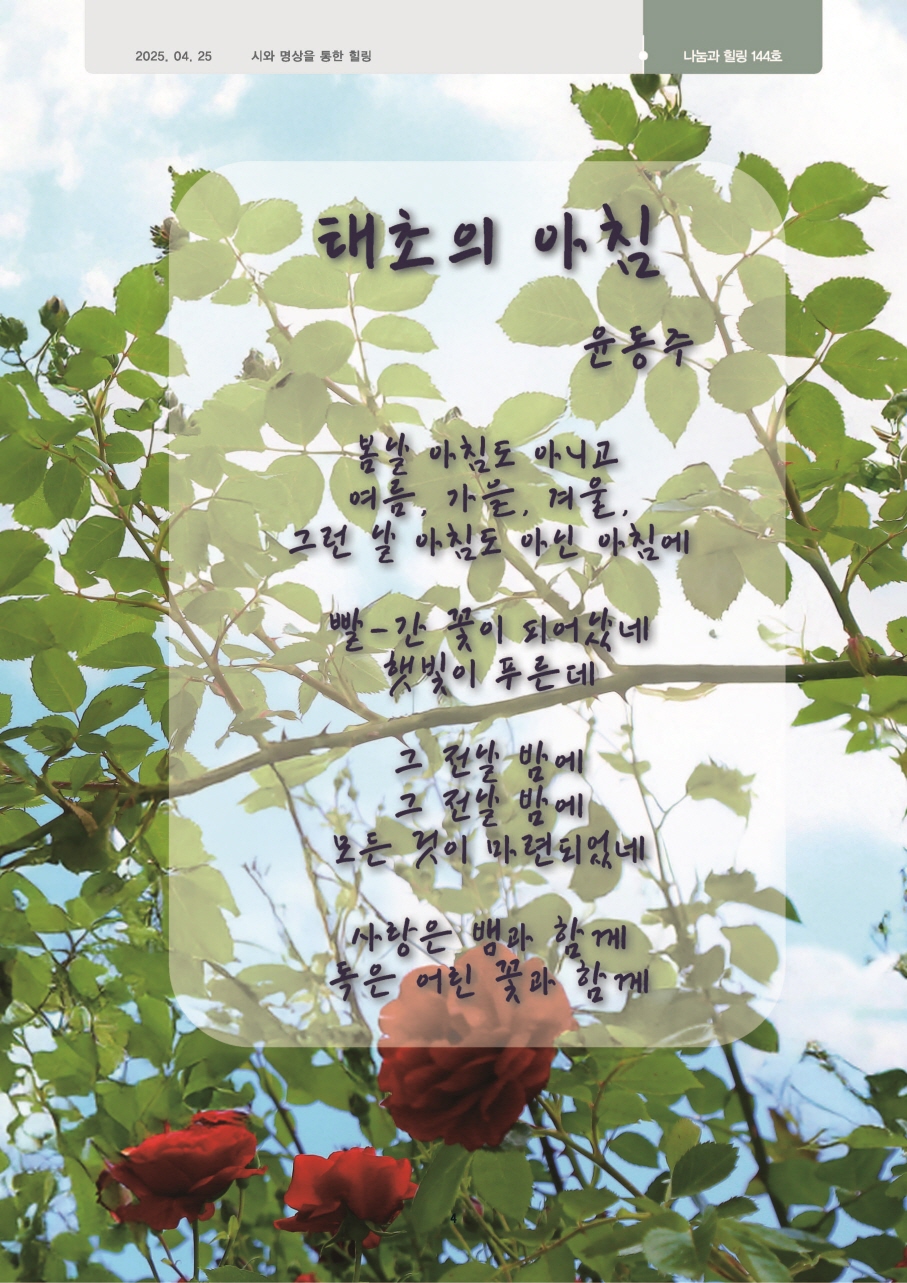 2025. 04. 25 시와 명상을 통한 힐링 나눔과 힐링 144호
태초의 아침
윤동주
봄날 아침도 아니고
여름, 가을, 겨울,
그런 날 아침도 아닌 아침에
빨-간 꽃이 피어났네
햇빛이 푸른데
그 전날 밤에
그 전날 밤에
모든 것이 마련되었네
사랑은 뱀과 함께
독은 어린 꽃과 함께
4